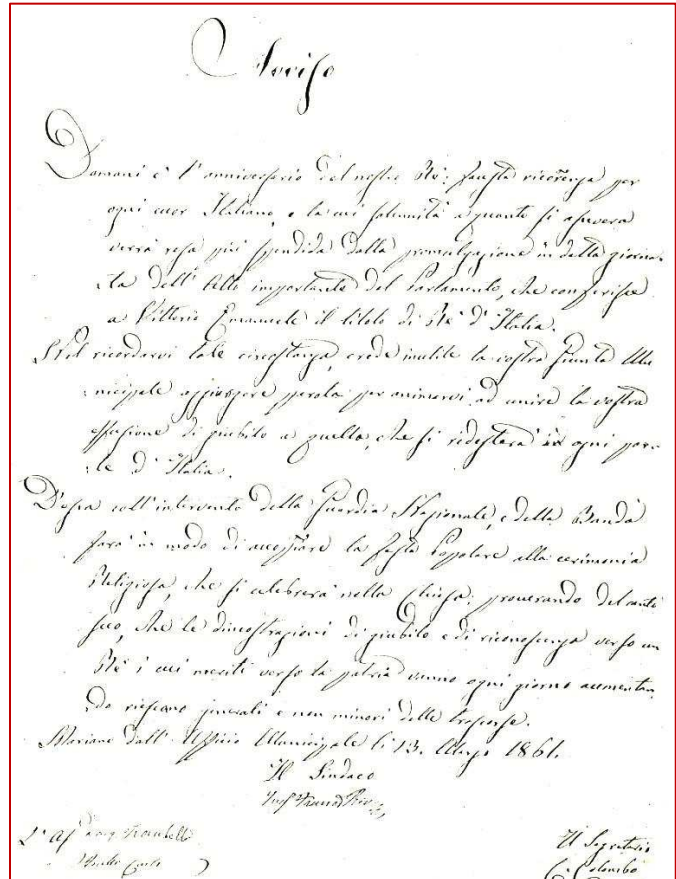 Avviso
Domani è l'anniversario del nostro Rè: fausta ricorrenza per
ogni cuor Italiano, e la cui solennità a quanto si assevera
verrà resa più splendida dalla promulgazione in detta giorna-
-ta dell'Atto importante del Parlamento, che conferisce
a Vittorio Emanuele il titolo di Rè d'Italia.
Nel ricordarvi tale circostanza, crede inutile la vostra Giunta Mu
-nicipale aggiungere parola per animarvi ad unire la vostra
effusione di giubilo a quella, che si ridesterà in ogni par-
-te d'Italia.
D'essa coll'intervento della Guardia Nazionale, e della Banda
farà in modo di accoppiare la festa Popolare alla cerimonia
Religiosa, che si celebrerà nella Chiesa; procurando del canto
suo, che le dimostrazioni di giubilo e di riconoscenza verso un
Rè i cui meriti verso la patria vanno ogni giorno aumentan
-do riescano generali e non minori delle trascorse.
Mariano dall'Ufficio Municipale li 13. Marzo 1861.
Il Sindaco
L'As
Il Segretario
C. Colombo